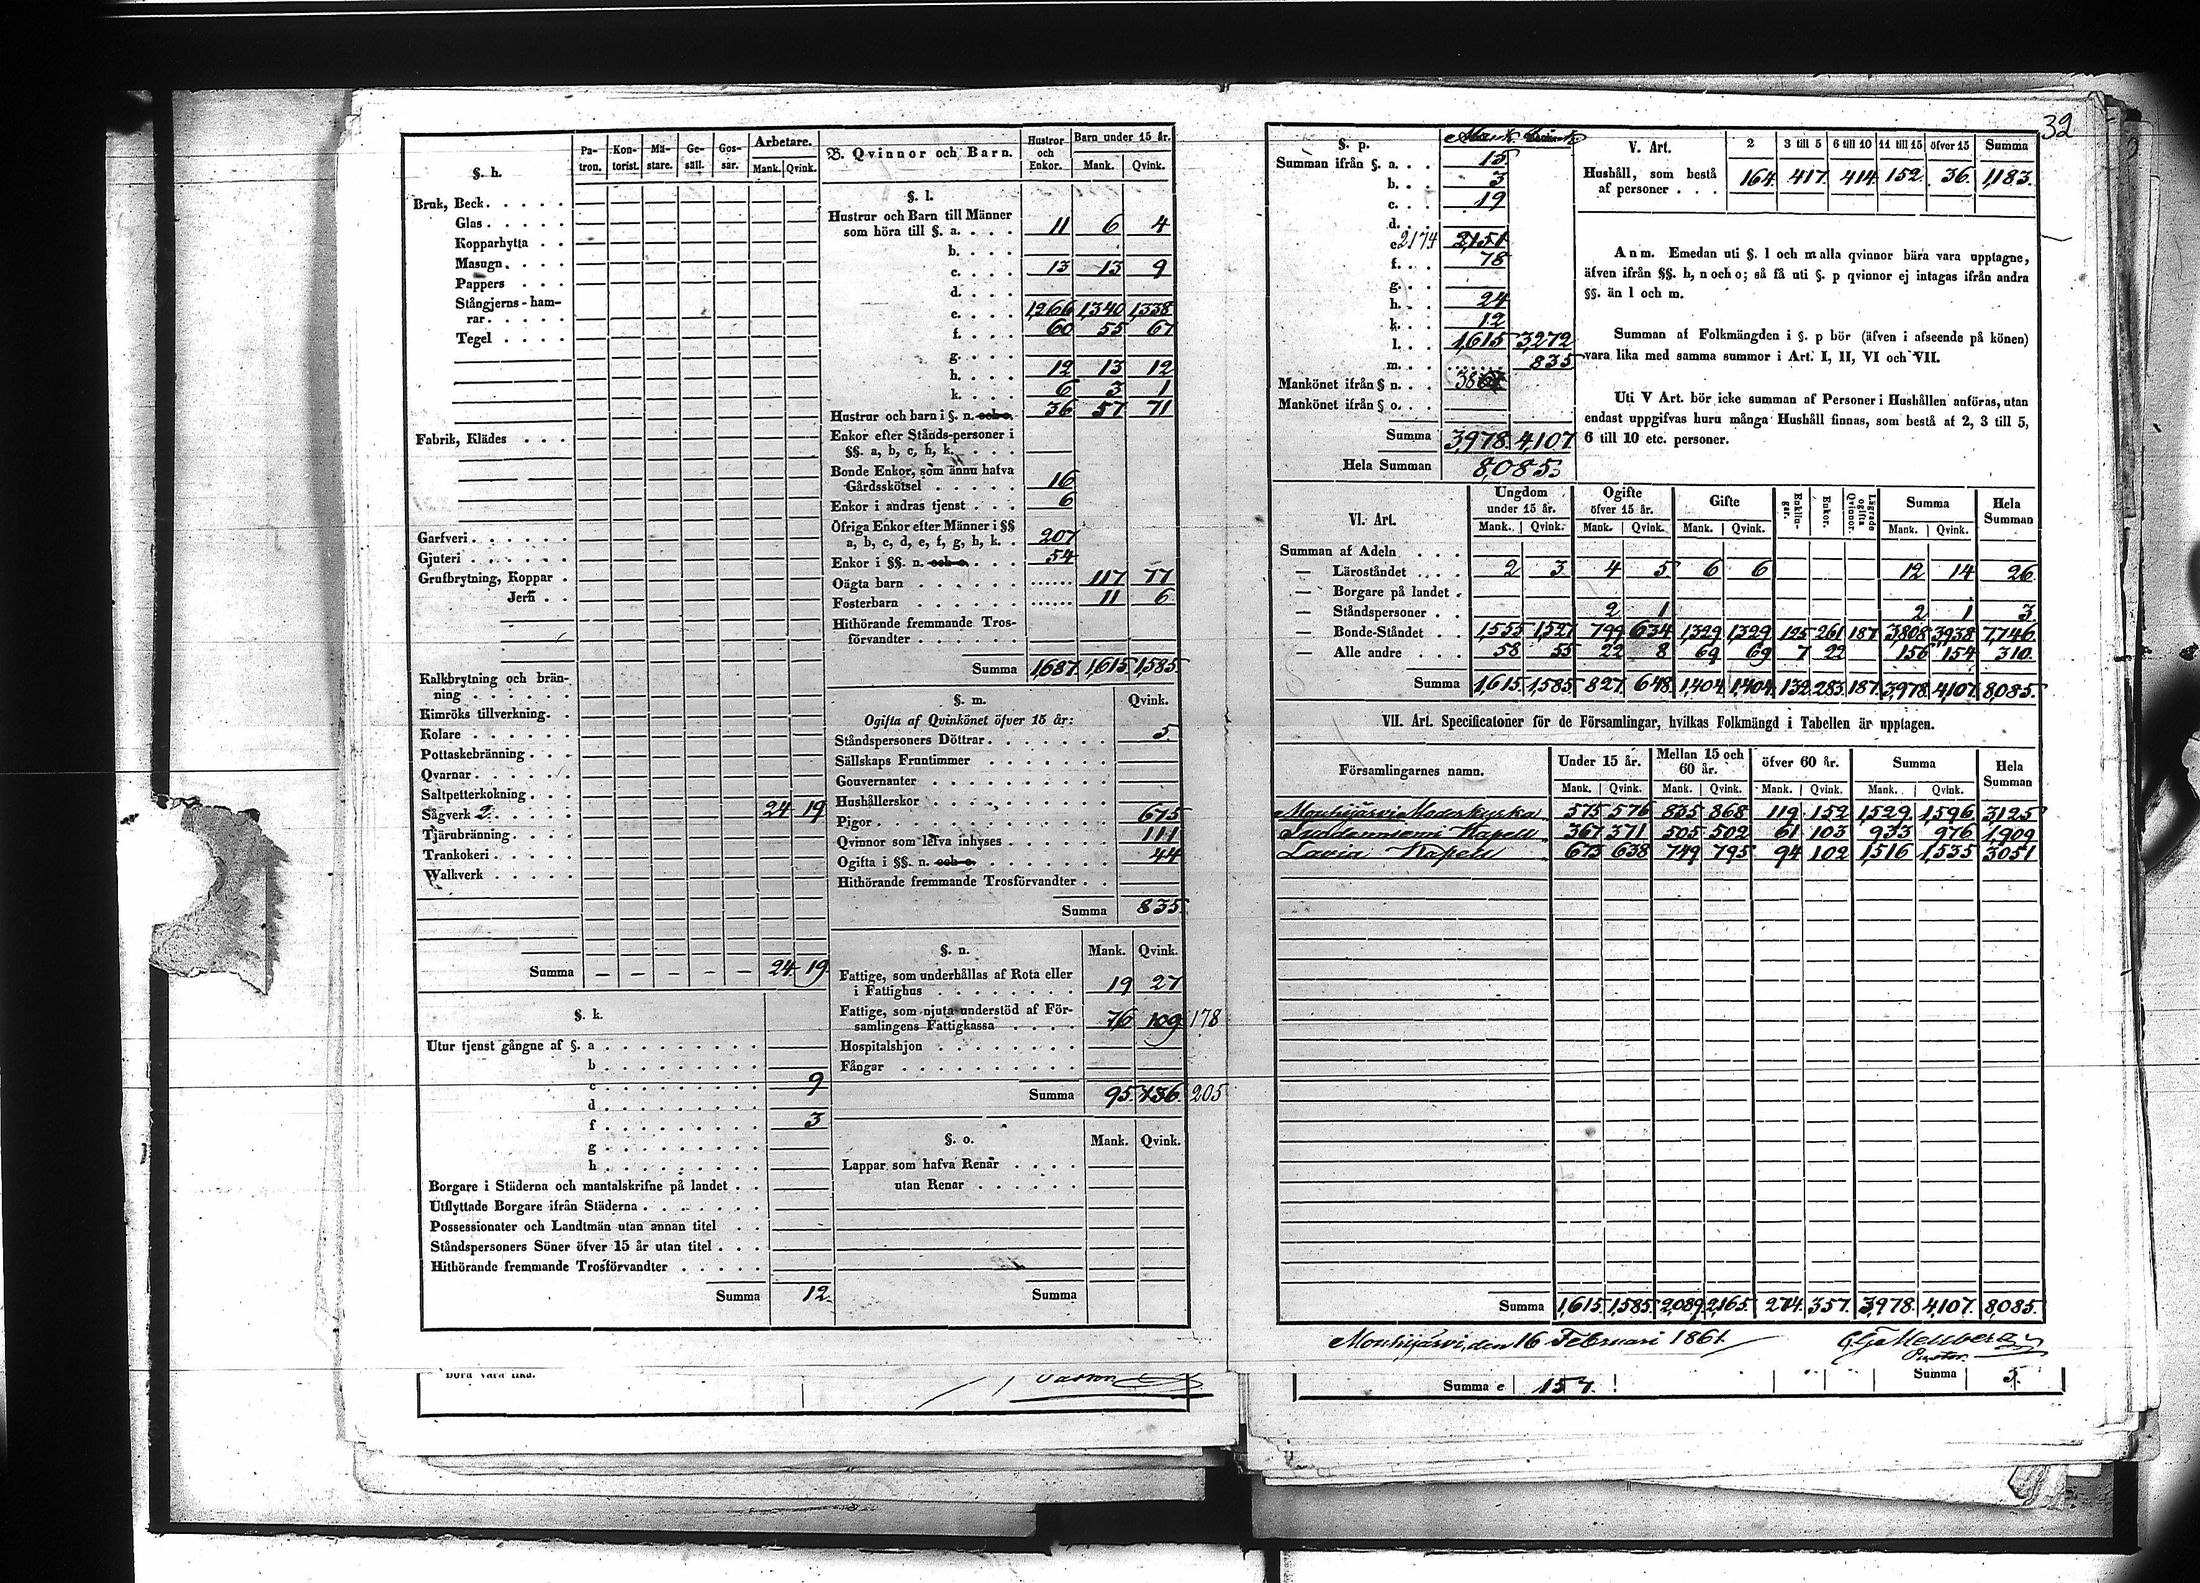 32
§. h.
Pa-tron. Kon-torist. Mä-stare. Ge-säll. Gos-sar. Arbetare.
Mank. Qvink.
Bruk, Beck
Glas
Kopparhytta
Masugn
Pappers
Stångjerns-ham-
rar
Tegel
Fabrik, Klädes
Garfveri
Gjuteri
Grufbrytning, Koppar
Jern
Kalkbrytning och brän-
ning
Kimröks tillverkning
Kolare
Pottaskebränning
Qvarnar
Saltpetterkokning
Sågverk 2 24 19
Tjärubränning
Trankokeri
Walkverk
Summa — — — — — 24 19
§. k.
Utur tjenst gångne af §. a
b
c 9
d
f 3
g
h
Borgare i Städerna och mantalskrifne på landet
Utflyttade Borgare ifrån Städerna
Possessionater och Landtmän utan annan titel
Ståndspersoners Söner öfver 15 år utan titel
Hithörande fremmande Trosförvandter
Summa 12
B. Qvinnor och Barn. Hustror och Enkor. Barn under 15 år.
Mank. Qvink.
§. l.
Hustrur och Barn till Männer
som höra till §. a. 11 6 4
b.
c. 13 13 9
d.
e. 1,266 1,340 1,338
f. 60 55 67
g.
h. 12 13 12
k. 6 3 1
Hustrur och barn i §. n. och o. 36 57 71
Enkor efter Stånds-personer i
§§. a, b, c, h, k.
Bonde Enkor, som ännu hafva
Gårdsskötsel 16
Enkor i andras tjenst 6
Öfriga Enkor efter Männer i §§
a, b, c, d, e, f, g, h, k. 207
Enkor i §§. n. och o. 54
Oägta barn 117 77
Fosterbarn 11 6
Hithörande fremmande Tros-
förvandter
Summa 1,687 1,615 1,585
§. m. Qvink.
Ogifta af Qvinkönet öfver 15 år:
Ståndspersoners Döttrar 5
Sällskaps Fruntimmer
Gouvernanter
Hushållerskor
Pigor 675
Qvinnor som lefva inhyses 111
Ogifta i §§. n. och o. 44
Hithörande fremmande Trosförvandter
Summa 835
§. n. Mank. Qvink.
Fattige, som underhållas af Rota eller
i Fattighus 19 27
Fattige, som njuta understöd af För-
samlingens Fattigkassa 76 109 178
Hospitalshjon
Fångar
Summa 95 136 205
§. o. Mank. Qvink.
Lappar som hafva Renar
utan Renar
Summa
§. p. Mank.
Summan ifrån §. a. 15
b. 3
c. 19
d.
e. 2174 2,151
f. 78
g.
h. 24
k. 12
l. 1,615 3,272
m. 835
Mankönet ifrån § n.
Mankönet ifrån § o.
Summa 3,978 4,107
Hela Summan 8,085
V. Art. 2 3 till 5 6 till 10 11 till 15 öfver 15 Summa
Hushåll, som bestå
af personer 164 417 414 152 36 1,183
Anm. Emedan uti §. l och m alla qvinnor bära vara upptagne,
äfven ifrån §§. h, n och o; så få uti §. p qvinnor ej intagas ifrån andra
§§. än l och m.
Summan af Folkmängden i §. p bör (äfven i afseende på könen)
vara lika med samma summor i Art. I, II, VI och VII.
Uti V Art. bör icke summan af Personer i Hushållen anföras, utan
endast uppgifvas huru många Hushåll finnas, som bestå af 2, 3 till 5,
6 till 10 etc. personer.
VI. Art. Ungdom under 15 år. Ogifte öfver 15 år. Gifte Enklin-gar. Enkor. Lägrade ogifta Qvinnor. Summa Hela Summan
Mank. Qvink. Mank. Qvink. Mank. Qvink. Mank. Qvink.
Summan af Adeln
— Läroståndet 2 3 4 5 6 6 12 14 26
— Borgare på landet
— Ståndspersoner 2 1 2 1 3
— Bonde-Ståndet 1,555 1,527 799 634 1,329 1,329 125 261 187 3,808 3,938 7,746
— Alle andre 58 55 22 8 69 69 7 22 156 154 310
Summa 1,615 1,585 827 648 1,404 1,404 132 283 187 3,978 4,107 8,085
VII. Art. Specificatoner för de Församlingar, hvilkas Folkmängd i Tabellen är upptagen.
Församlingarnes namn. Under 15 år. Mellan 15 och 60 år. öfver 60 år. Summa Hela Summan
Mank. Qvink. Mank. Qvink. Mank. Qvink. Mank. Qvink.
Mouhijärvi Moderkyrka 575 576 835 868 119 152 1,529 1,596 3,125
Suddenniemi Kapell 367 371 505 502 61 103 933 976 1,909
Lavia Kapell 673 638 749 795 94 102 1,516 1,535 3,051
Summa 1,615 1,585 2,089 2,165 274 357 3,978 4,107 8,085
Mouhijärvi, den 16 Februari 1861.
Mellberg
Pastor.
bora vara lika.
Pastor
Summa e 157 Summa 5